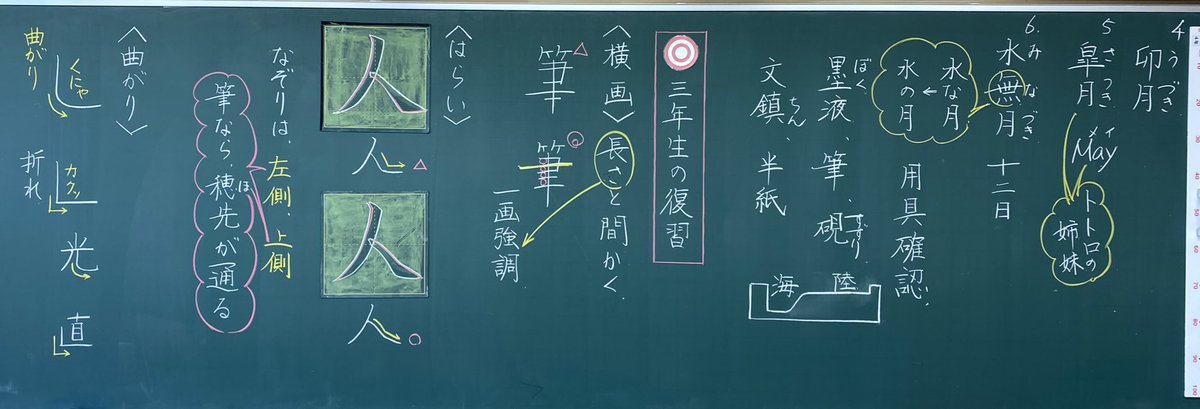 4 卯月 うづき
5 皐月 さつき
May メイ
トトロの
姉妹
6. 水無月 みなづき 十二日
水な月
←
水の月
用具確認
墨液、筆、硯、 ぼく すずり
文鎮、半紙 ちん
海 陸
三年生の復習
〈横画〉長さと間かく
筆 筆
一画強調
〈はらい〉
人 人
人 人
なぞりは、左側、上側
筆なら穂先が通る ほ
〈曲がり〉
くにゃ
曲がり
カクッ
折れ
光
直